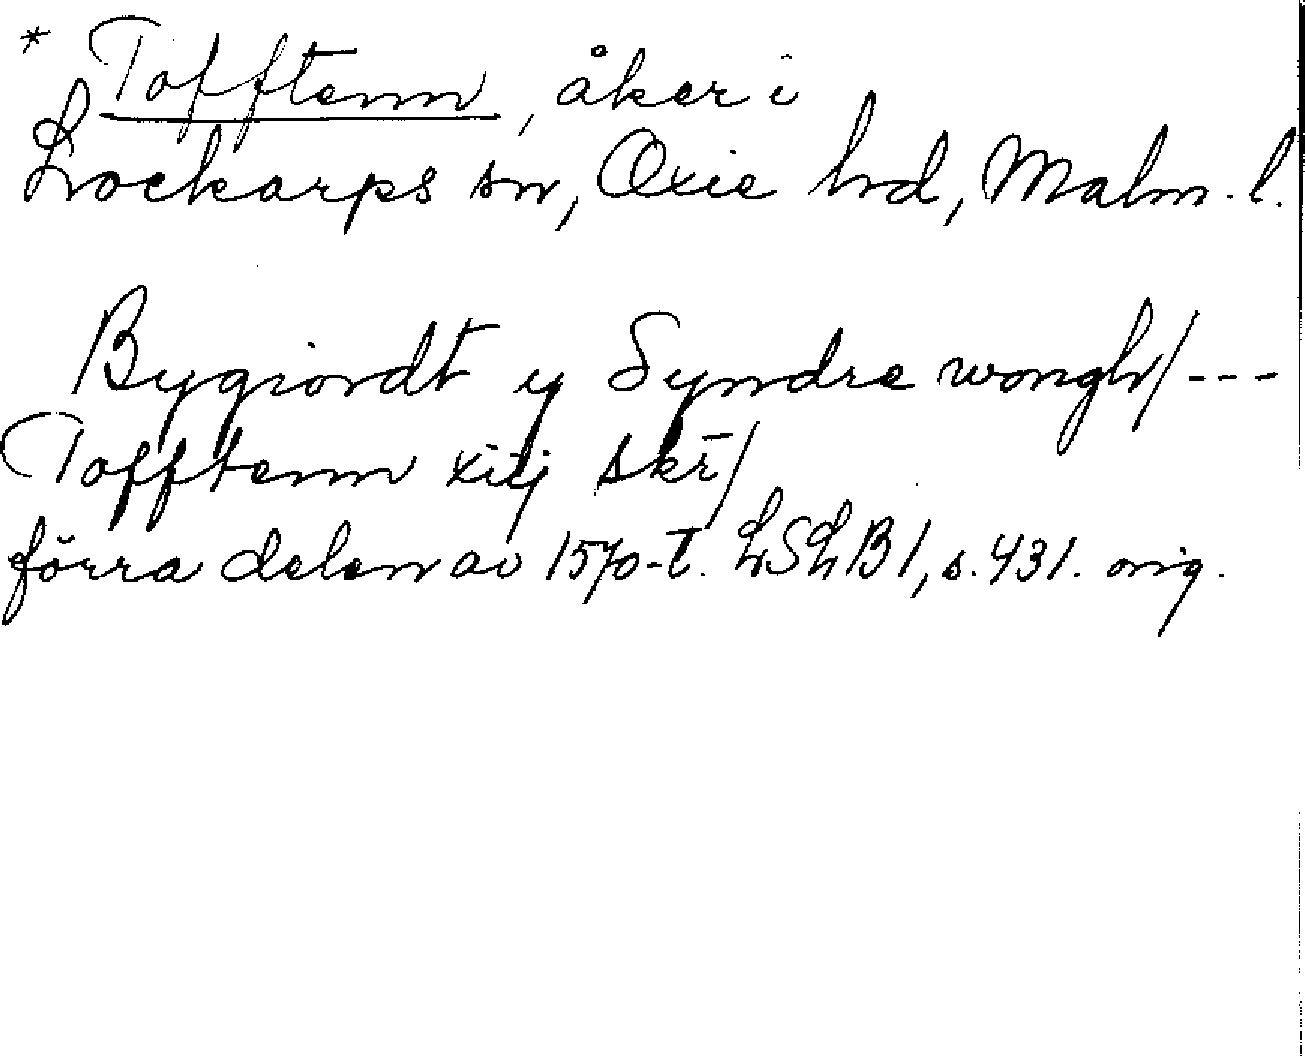 * Tofftenn, åker i
Lockarps sn, Oxie hd, Malm. l.
Bygiordt y Syndre wongh/ ---
Tofftenn xiij skr̄/
förra delen av 1570-t. LSLB1, s. 431. orig.